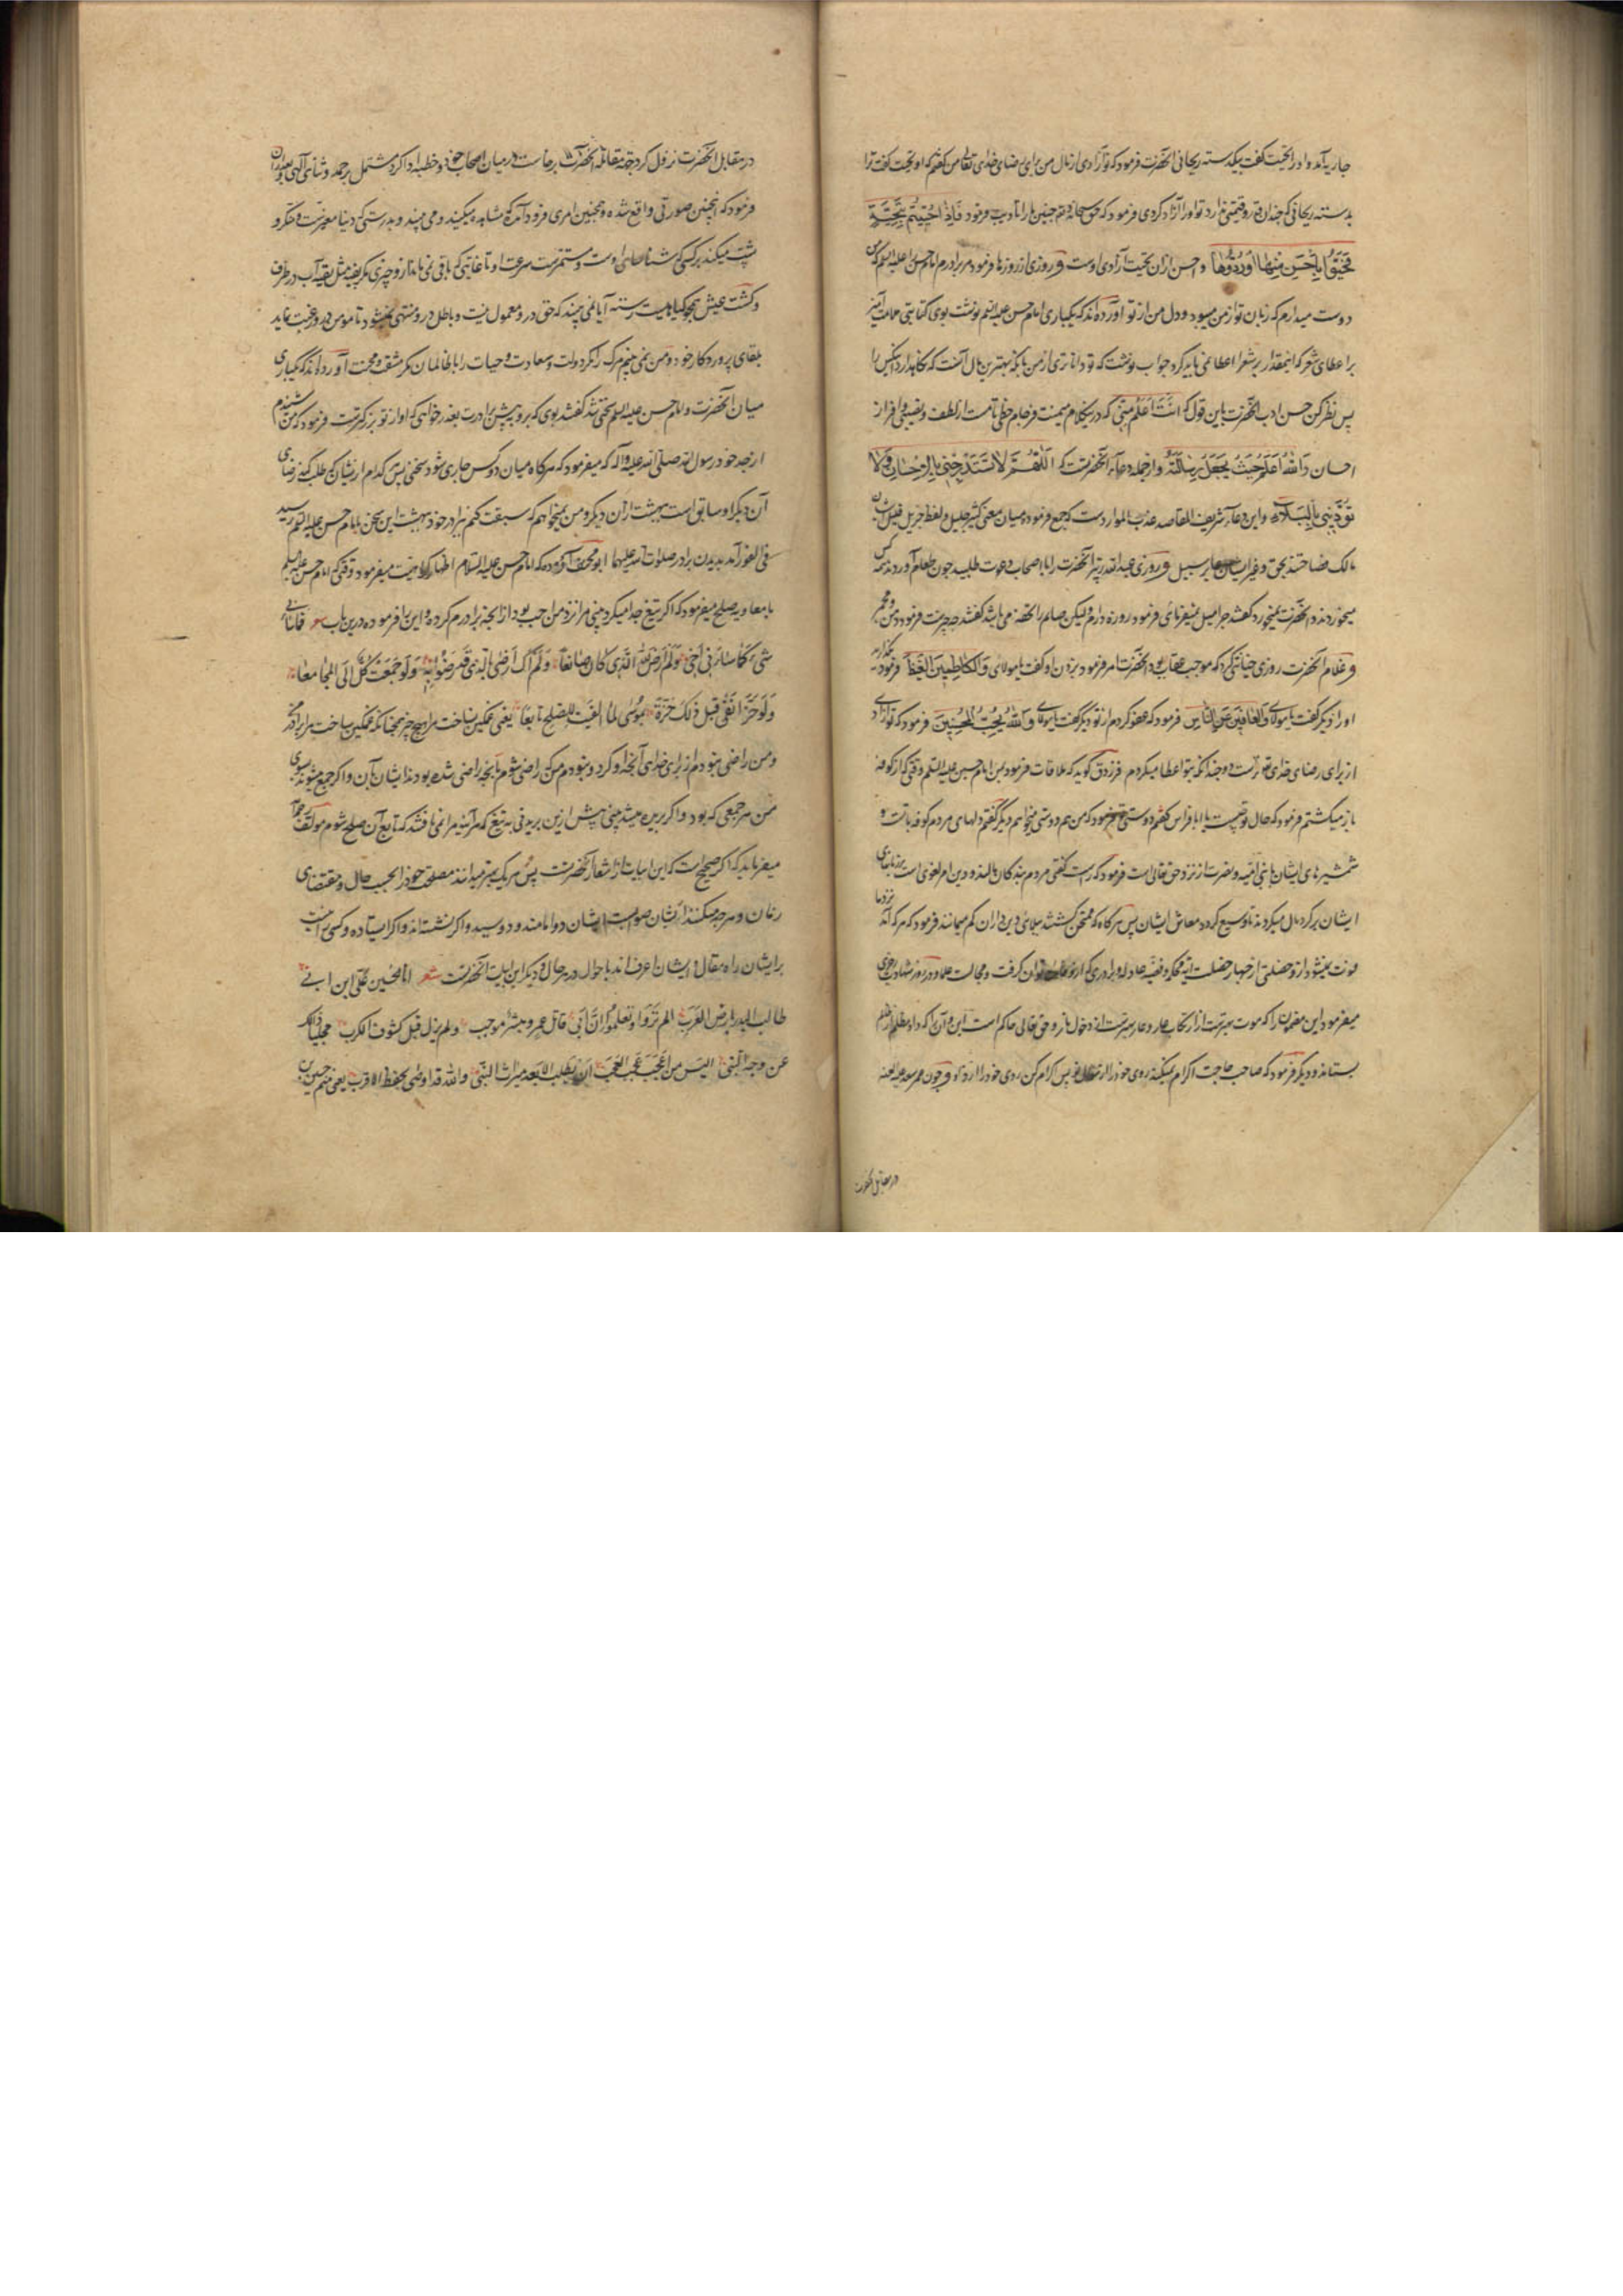 جاریه آمد و او را تحیت گفت بیکدسته ریحانی آنحضرت فرمود که تو آزادی از مال من برای رضای خدای تعالی من گفتم که او تحیت گفت ترا
بدسته ریحانی که چندان قدر و قیمتی ندارد تو او را آزاد کردی فرمود که حق سبحانه و تعالی چنین ما را تادیب فرمود فَاِذَا حُیّیتُم بِتَحِیَّةٍ
فَحَیُّوا بِاَحسَنَ مِنهَا اَورُدُّوهَا و احسن ازان تحیت آزادی اوست و روزی از روزها فرمود مر برادرم امام حسن را علیه السلم که من
دوست میدارم که زبان تو از من میبود و دل من از تو آورده اند که یکباری امام حسن علیه السلم نوشت بوی کتابتی ملامت آمیز
بر اعطای شعر که اینمقدار بر شعرا اعطا نمی باید کرد جواب نوشت که تو داناتری از من بآنکه بهترین مال آنست که نگاهدارد آنکس را
پس نظر کن حسن ادب آنحضرت باین قول که اَنتَ اَعلَمُ مِنّی که درینکلام میمنت فرجام حظی تامست از لطف و نصیبی وافر از
احسان وَاللهُ اَعلَمُ حَیثُ یَجعَلُ رِسَالَتَهُ و از جمله دعاء آنحضرتست که اَللّهُمَّ لَا تَستَدرِجنِی بِالاِحسَانِ وَلَا
تُؤَدِّبنِی بِالبَلَاءِ و این دعاء شریف المقاصد عذب الموارد است که جمع فرموده میان معنی کثیر جلیل و لفظ جزیل قلیل
مالک فصاحتند بحق و غیر ایشان عابر سبیل و روزی عبدالله زبیر آنحضرت را با اصحاب دعوت طلبید چون طعام آوردند همه کس
میخوردند و آنحضرت نمیخورد گفتند چرا میل نمیفرمای فرمود روزه دارم ولیکن صایم را تحفه می باشد گفتند چه چیزست فرمود دهن و مجمر
و غلام آنحضرت روزی خیانتی کرد که موجب عقاب بود آنحضرت امر فرمود بزدن او گفت یا مولای وَالکَاظِمِینَ الغَیظَ فرمود بگذارید
او را دیگر گفت یا مولای وَالعَافِینَ عَنِ النَّاسِ فرمود که عفو کردم از تو دیگر گفت یا مولای وَاللهُ یُحِبُّ المُحسِنِینَ فرمود که تو آزادی
از برای رضای خدای و دو چندانکه بتو اعطا میکردم فرزدق گوید که ملاقات فرمود بمن امام حسین علیه السلم وقتی که از کوفه
باز میگشتم فرمود که حال تو چیست یا ابا فراس گفتم فرمود که من هم دوستی میخواهم دیگر گفتم دلهای مردم کوفه با تست و
شمشیرهای ایشان با بنی امیه و نصرت از نزد حق تعالی است فرمود که راست گفتی مردم بندگان مالند و دین امر لغوی است بر زبانهای
ایشان بر گرد مال میگردند تا وسیع گردد معاش ایشان پس هرگاه که ممتحن گشتند ببلای دین داران کم میمانند فرمود که هر که آمد نزد ما
فوت نمیشود از و خصلتی از چهار خصلت آیه محکم و قضیه عادله و برادری که ازو فایده توان گرفت و مجالست علما و در روز شهادت
میفرمود این مضمون را که موت بهترست از ارتکاب عار و عار بهترست از دخول نار و حق تعالی حاکم است این و آن
بستاند و دیگر فرمود که صاحب حاجت اکرام نمیکند روی خود را از سؤال تو پس اکرام کن روی خود را از رد او و چون عمر سعد علیه اللعنه
در مقابل آنحضرت
در مقابل آنحضرت نزول کرد بجهة مقاتله آنحضرت برخاست در میان اصحاب خود و خطبه ادا کرد مشتمل بر حمد و ثنای آلهی بعد ازان
فرمود که اینچنین صورتی واقع شده و همچنین امری فرود آمده که مشاهده میکنید و می بینید و بدرستی که دنیا متغیرست و متنکر و
پشت میکند بر کسی که شناسای اوست و مستمرست سرعت او تا غایتی که باقی نمی ماند ازو چیزی مگر بقیه مثل بقیه آب در ظرف
و گشت عیش همچو گیاه آیا نمی بینید که حق درو معمول نیست و باطل درو منتهی نمیشود تا مومن درو رغبت نماید
بلقای پروردگار خود و من نمی بینم مرگ را مگر دولت و سعادت و حیات را با ظالمان مگر مشقت و محنت آورده اند که یکباری
میان آنحضرت و امام حسن علیه السلم سخنی شد گفتند بوی که برو پیش برادرت بعذر خواهی که او از تو بزرگترست فرمود که من شنیدم
از جد خود رسول الله صلی الله علیه و آله که میفرمود که هرگاه میان دو کس جاری شود سخنی پس کدام ازیشان که طلب کند رضای
آن دیگر او سابق است ببهشت ازان دیگر و من نمیخواهم که سبقت کنم برادر خود ببهشت این سخن بامام حسن علیه السلم رسید
فی الفور آمد بدیدن برادر صلوات الله علیهما ابو مخنف آورده که امام حسین علیه السلام اظهار کراهیت میفرمود وقتی که امام حسن علیه السلم
با معاویه صلح میفرمود که اگر بتیغ جدا میکردی بینی مرا نزد من احب بود از آنچه برادرم کرده و این را فرموده درین باب شعر فما ساءنی
شیء کما ساءنی اخی ولم ارض لله الذی کان صانعا ولم اک ارضی بالذی قد رضوا به ولو جمعت کل الی المجامعا
ولو حز انفی قبل ذلک حزة بموسی لما الفیت للصلح تابعا یعنی غمگین نساخت مرا هیچ چیز همچنانکه غمگین ساخت مرا برادر من
و من راضی نبودم از برای خدای آنچه او کرد و نبودم من که راضی شوم بآنچه راضی شده بودند ایشان بآن و اگر جمع میشد بسوی
من هر جمعی که بود و اگر بریده میشد بینی پیش ازین بریدنی به تیغ که هرآینه مرا نمی یافتند که تابع آن صلح شوم مولف
میفرماید که اگر صحیح است که این ابیات از اشعار آنحضرتست پس هریک بهتر میدانند مصلحت خود را بحسب حال و مقتضای
زمان و هرچه میکنند ایشان صوابست ایشان دو امامند و دو سید و اگر نشسته اند و اگر ایستاده و کسی را نیست
بر ایشان راه مقال و ایشان اعرف اند باحوال در هر حال و دیگر این ابیات آنحضرتست شعر انا الحسین علی ابن ابی
طالب البدر بارض العرب الم تروا و تعلموا ان ابی قاتل عمرو و مبیر مرحب ولم یزل قبل کشوف الکرب مجلیا ذلک
عن وجه النبی الیس من اعجب عجب العجب ان یطلب الابعد میراث النبی والله قد اوصی بحفظ الاقرب یعنی منم حسین بن